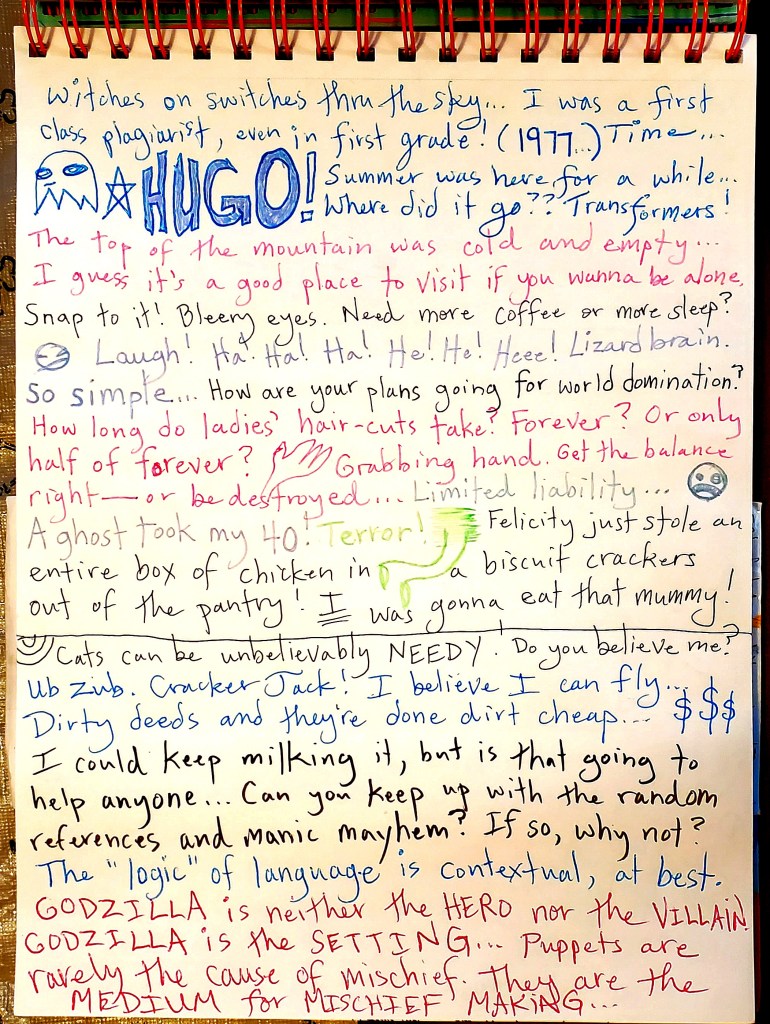 Witches on switches thru the sky... I was a first
class plagiarist, even in first grade! (1977...) Time...
HUGO! Summer was here for a while...
Where did it go?? Transformers!
The top of the mountain was cold and empty...
I guess it's a good place to visit if you wanna be alone.
Snap to it! Bleery eyes. Need more coffee or more sleep?
Laugh! Ha! Ha! Ha! He! He! Heee! Lizard brain.
So simple... How are your plans going for world domination?
How long do ladies' hair-cuts take? Forever? Or only
half of forever? Grabbing hand. Get the balance
right—or be destroyed... Limited liability...
A ghost took my 40! Terror! Felicity just stole an
entire box of chicken in a biscuit crackers
out of the pantry! I was gonna eat that mummy!
Cats can be unbelievably NEEDY. Do you believe me?
Ub Zub. Cracker Jack! I believe I can fly...
Dirty deeds and they're done dirt cheap... $$$
I could keep milking it, but is that going to
help anyone... Can you keep up with the random
references and manic mayhem? If so, why not?
The "logic" of language is contextual, at best.
GODZILLA is neither the HERO nor the VILLAIN.
GODZILLA is the SETTING... Puppets are
rarely the cause of mischief. They are the
MEDIUM for MISCHIEF MAKING...